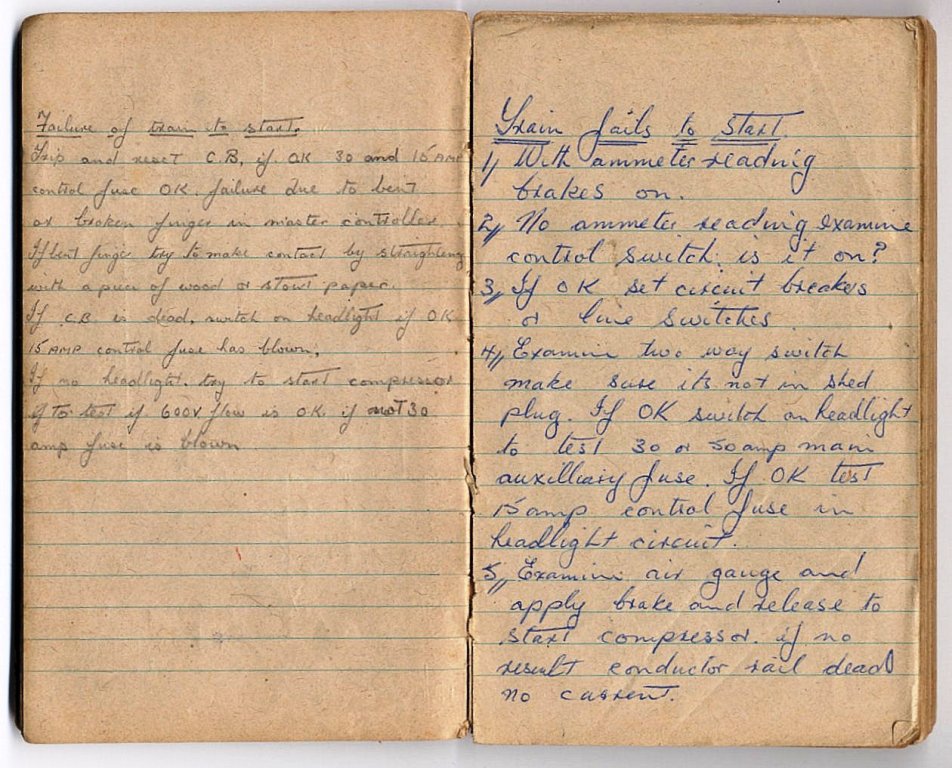 Failure of train to start.
Trip and reset C.B, if OK 30 and 15 AMP
control fuse OK. failure due to bent
or broken finger in master controller.
If bent finger try to make contact by straightening
with a piece of wood or stout paper.
If C.B. is dead, switch on headlight if OK
15 AMP control fuse has blown,
If no headlight. try to start compressor
to test if 600V flow is OK if not 30
amp fuse is blown
Train fails to start.
1,, With ammeter reading
brakes on.
2,, No ammeter reading examine
control switch, is it on?
3,, If OK set circuit breakers
or line switches
4,, Examine two way switch
make sure its not in shed
plug. If OK switch on headlight
to test 30 or 50 amp main
auxilliary fuse. If OK test
15 amp control fuse in
headlight circuit.
5,, Examine air gauge and
apply brake and release to
start compressor. if no
result conductor rail dead
no current.